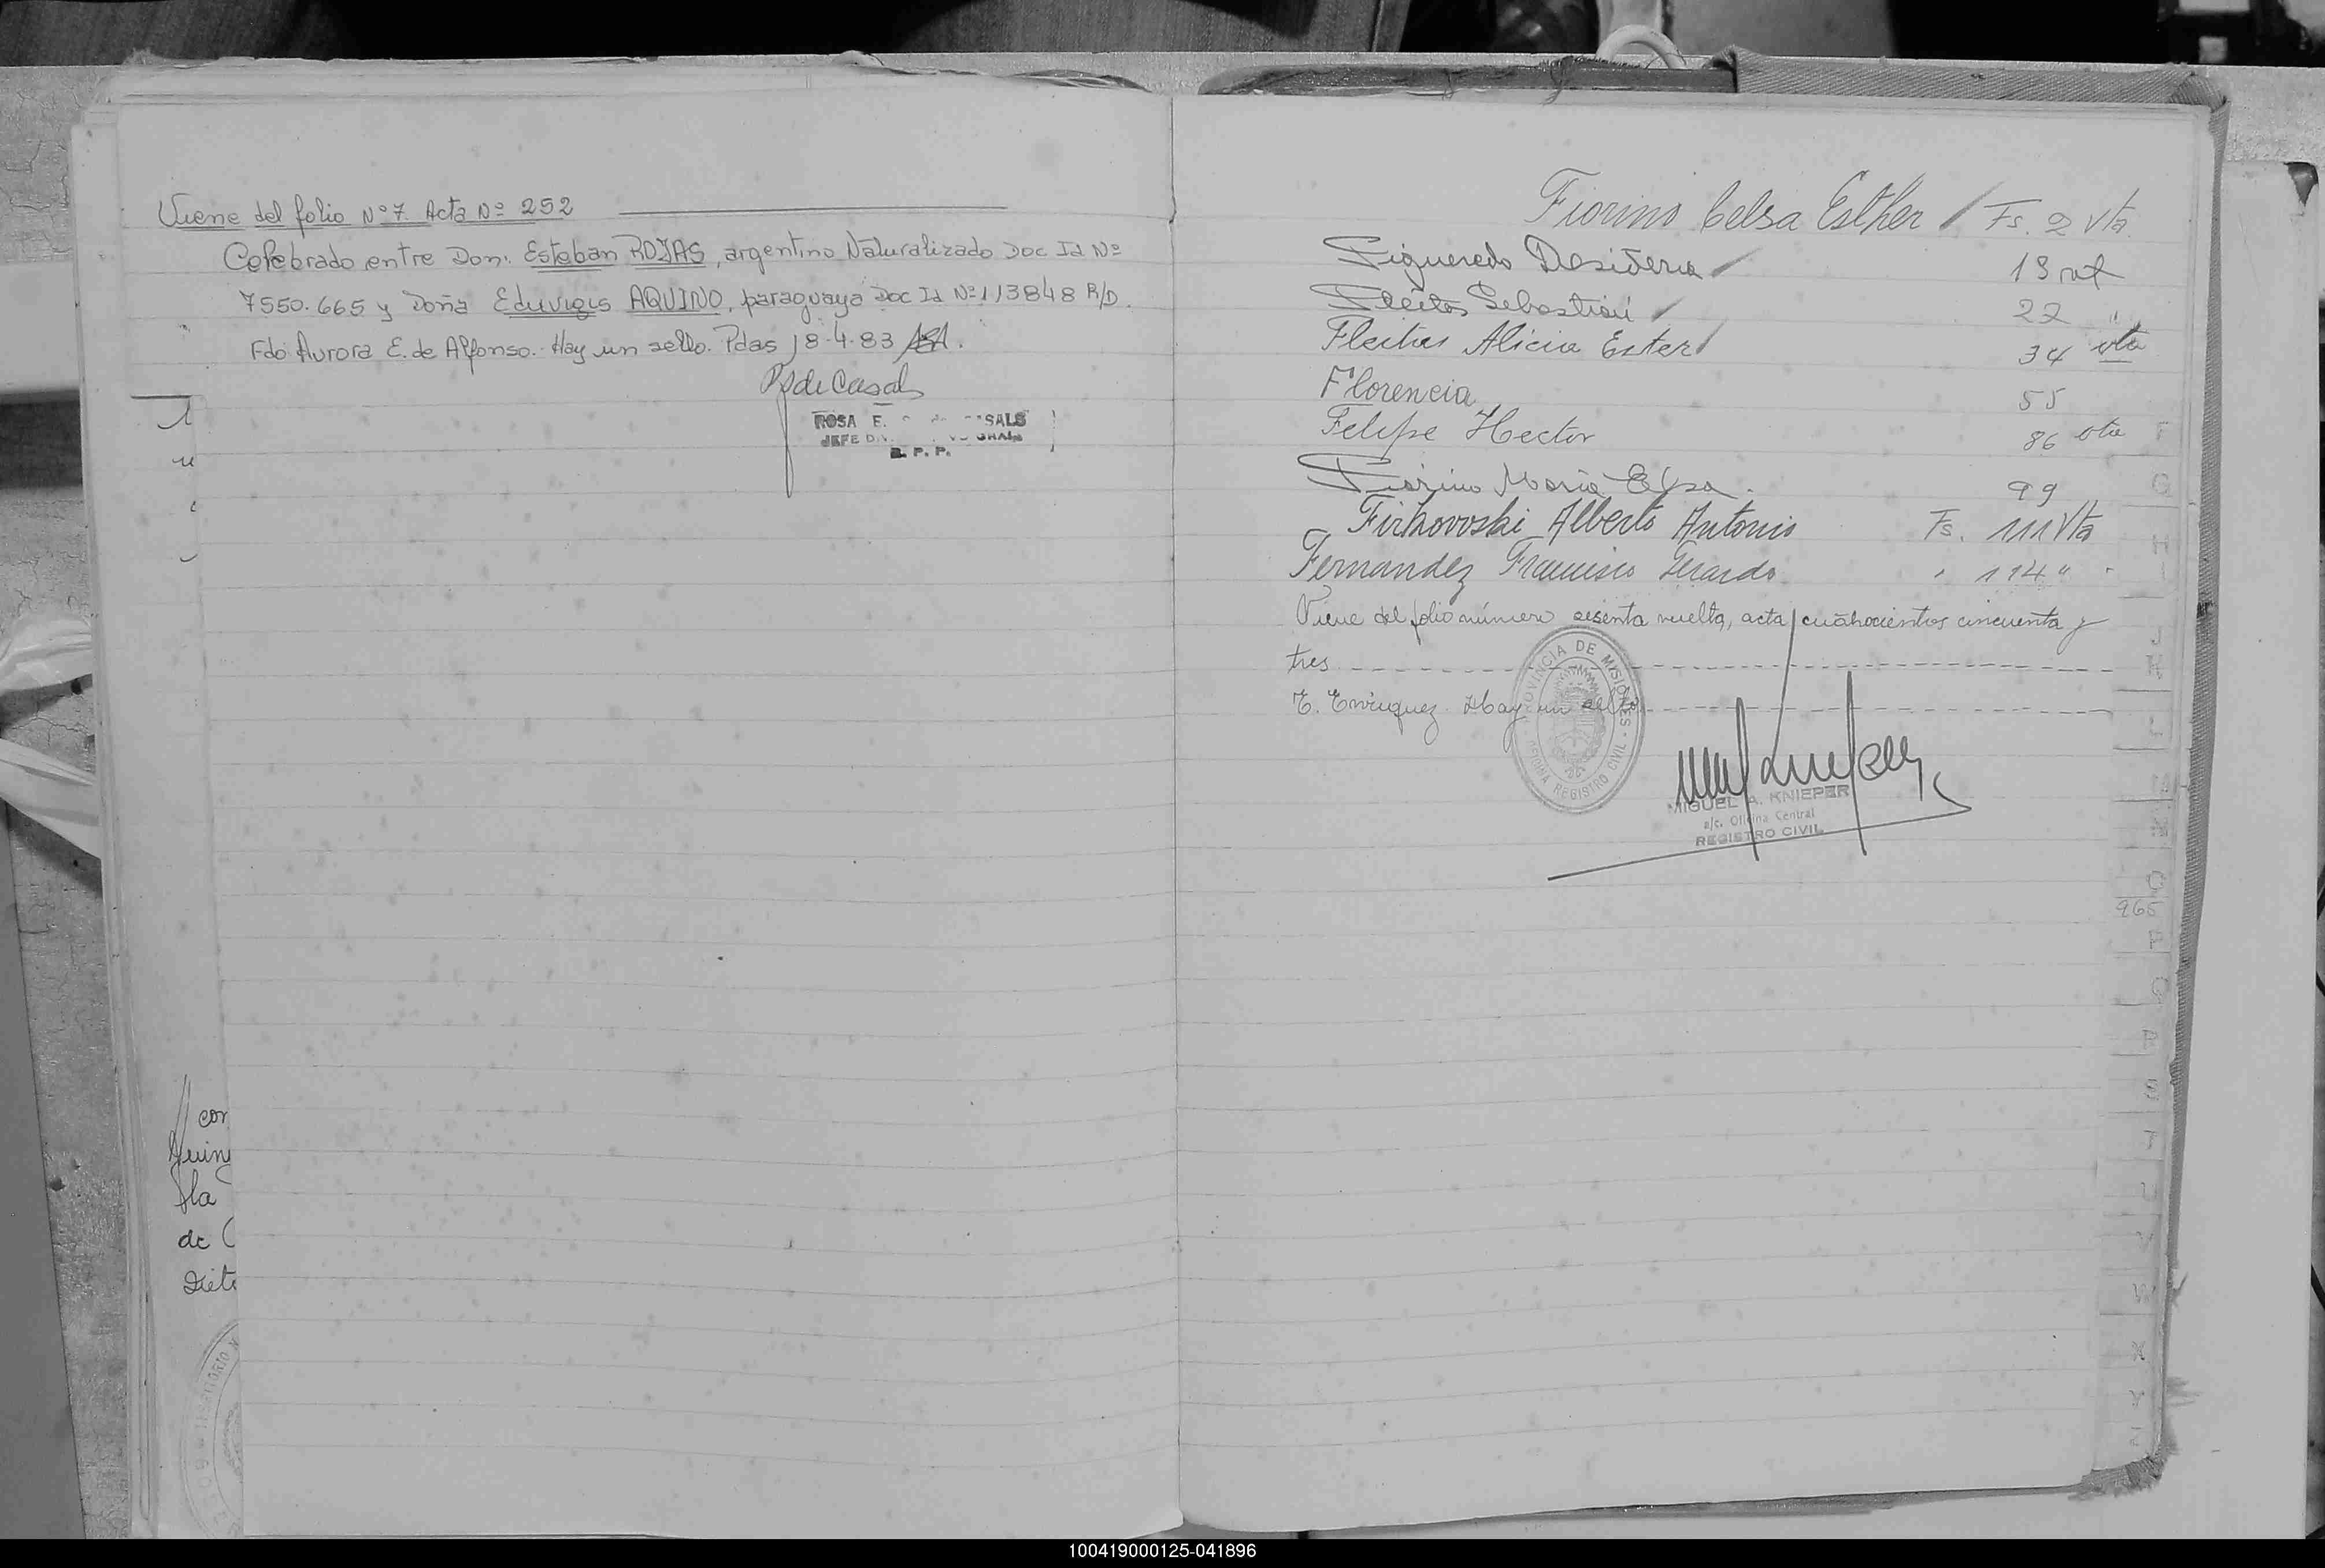 Viene del folio Nº 7. Acta Nº 252
Celebrado entre Don: Esteban ROJAS, argentino Naturalizado Doc Id Nº
7550.665 y Doña Eduvigis AQUINO, paraguaya Doc Id Nº 113848 R/D.
Fdo Aurora E. de Alfonso. Hay un sello. Pdas 18.4.83
ROSA E. SALS
JEFE
P. P.
con
de
Fiorino Celsa Esther / Fs. 2 Vta
Figueredo Desideria / 19
Fleitas Sebastian / 22 "
Fleitas Alicia Ester / 34 vta
Florencia 55
Felipe Hector 86 vta
Fiorino Maria Elsa. 99
Firkovoski Alberto Antonio Fs. 111 Vta
Fernandez Francisco Gerardo " 114 "
Viene del folio número sesenta vuelta, acta cuatrocientos cincuenta y
tres
E. Enriquez. Hay un sello
PROVINCIA DE MISIONES
REGISTRO CIVIL
MIGUEL A. KNIEPER
a/c. Oficina Central
REGISTRO CIVIL
965
100419000125-041896